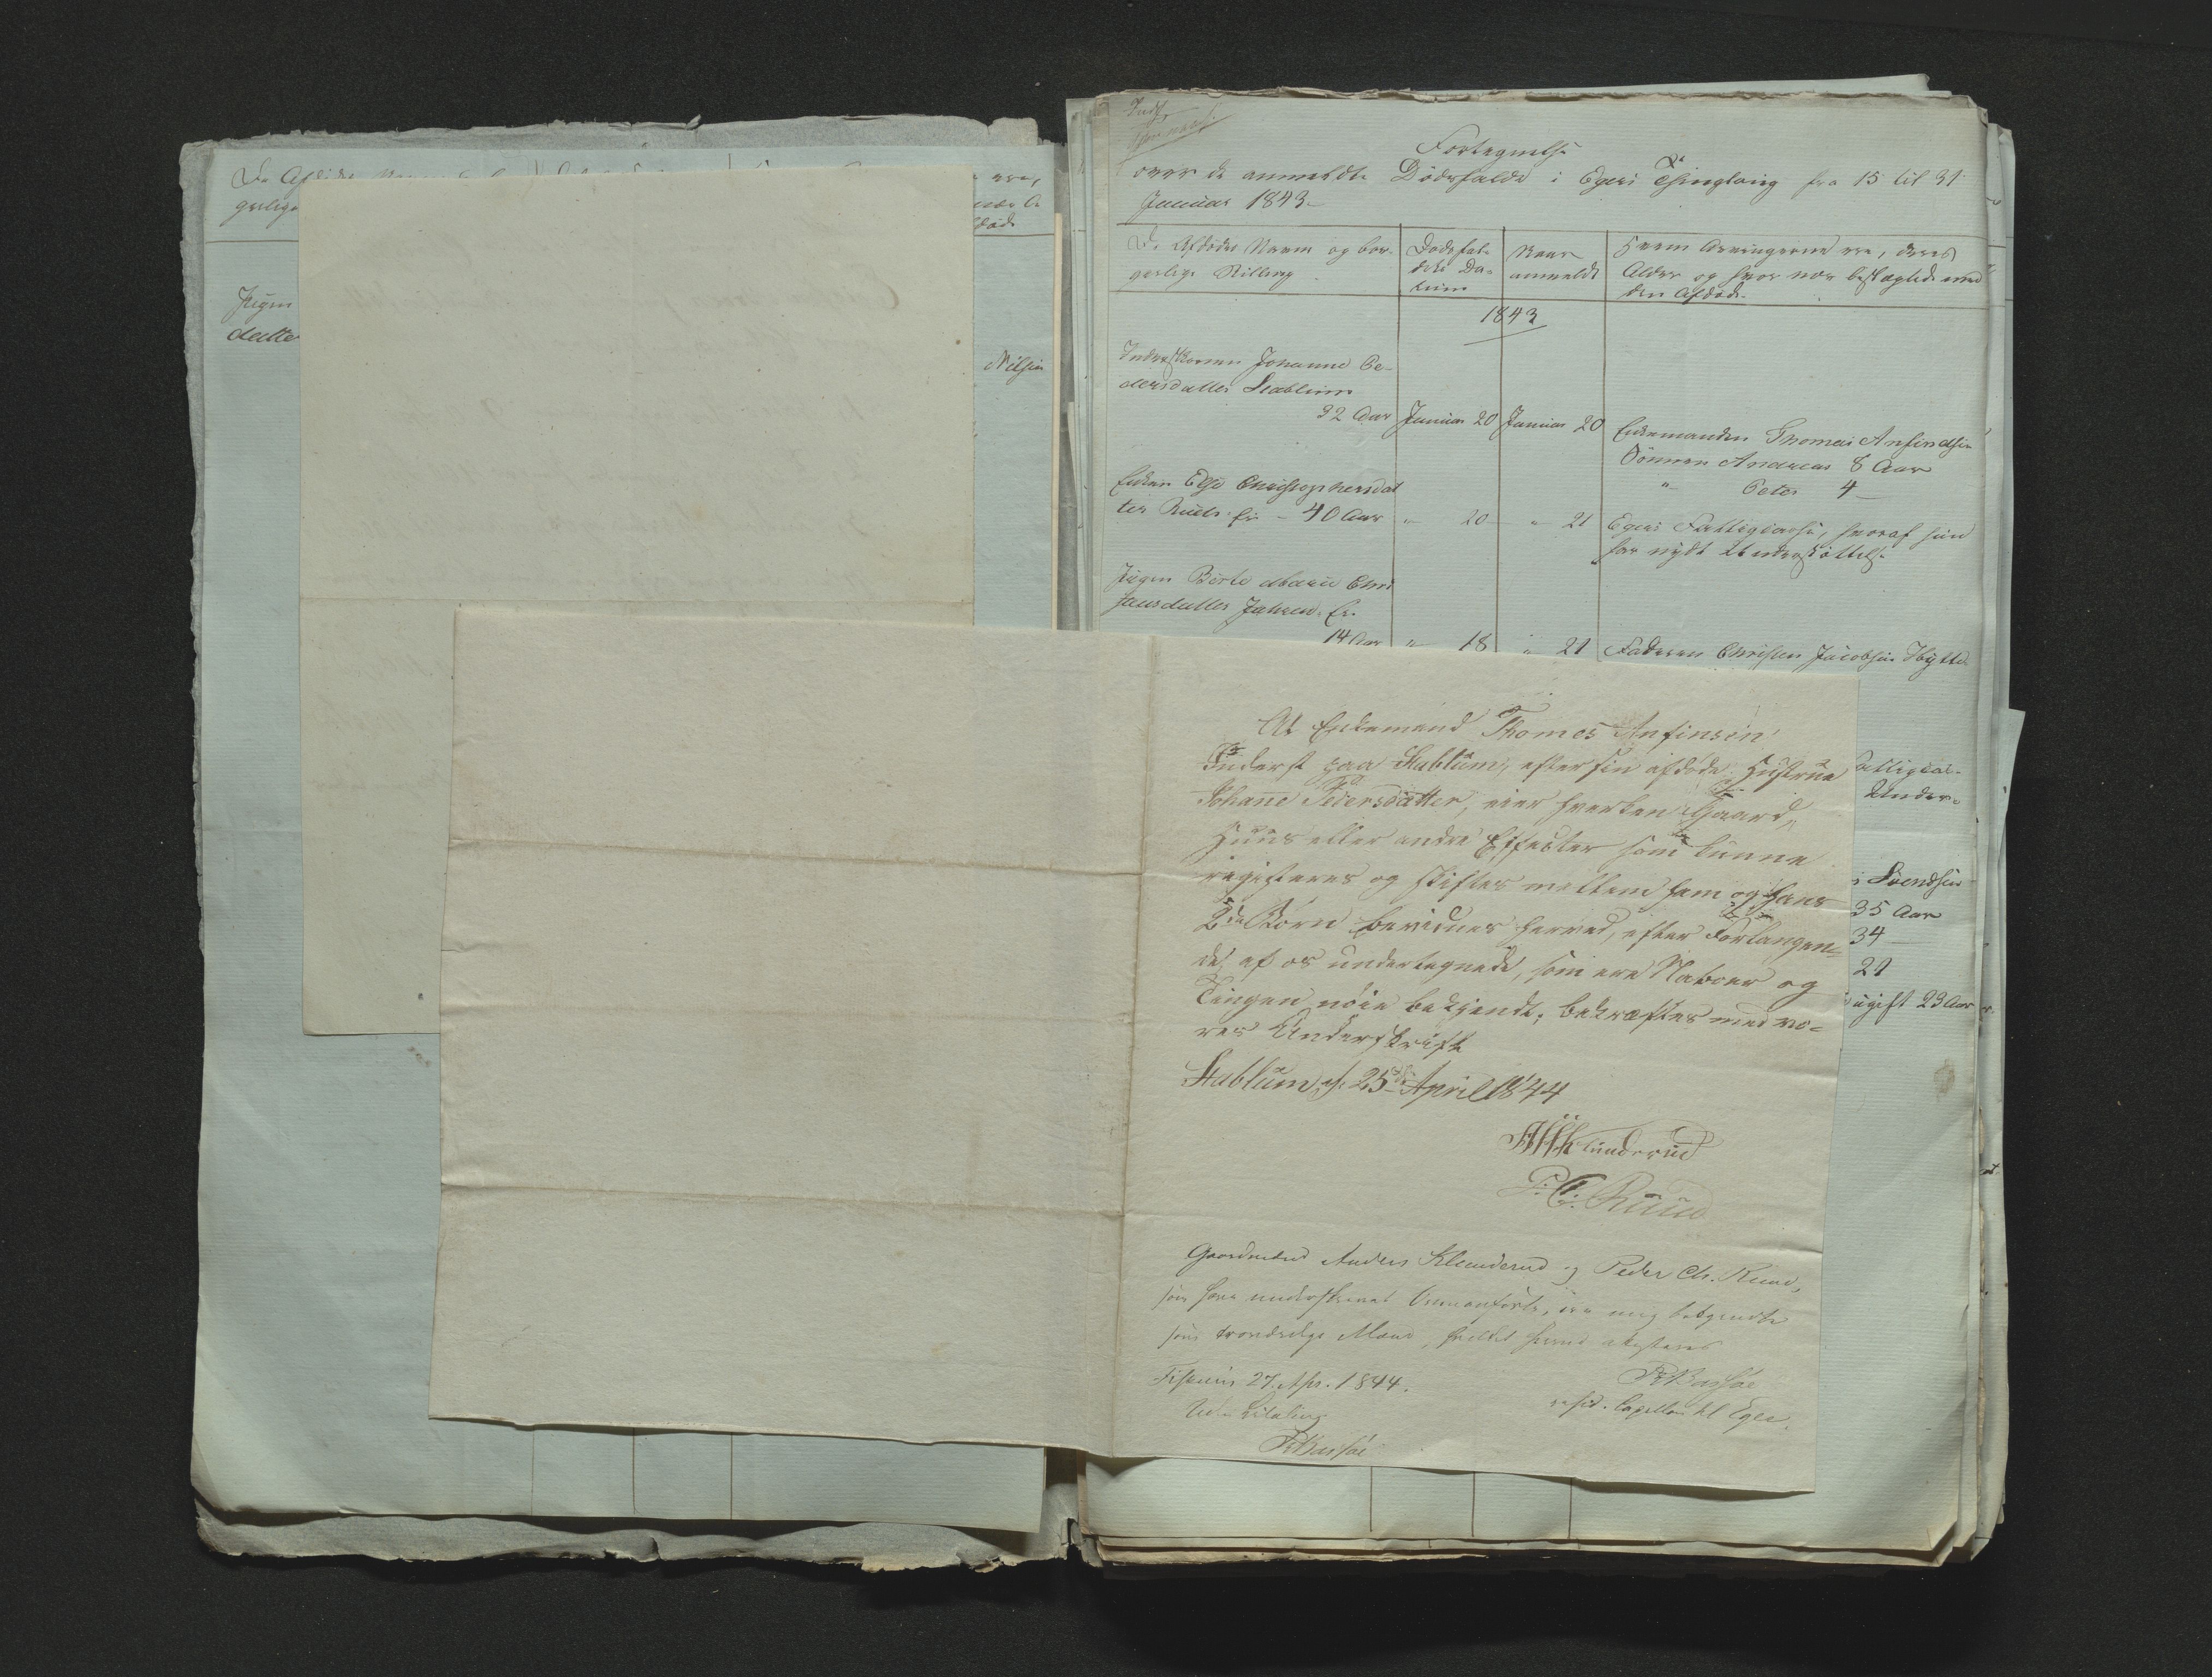 De Afdødes
gerlige
Pigen
datter
ere,
nær
Afdøde
Nilsen
Indf
Fortegnelse
over de anmeldte Dødsfalde i Egers Thinglaug fra 15 til 31
Januar 1843
De Afdødes Navn og bor-
gerlige Stilling
Dødsfal-
dets Da-
tum
Naar
anmeldt
Hvem Arvingerne ere, deres
Alder og hvor nær beslægtede med
den Afdøde
1843
Inderstkonen Johanne Pe-
dersdatter Stablum
32 Aar
Januar 20
Januar 20
Enkemanden Thomas Anfindsen
Sönnen Andreas 8 Aar
" Peter 4 —
Enken Else Christophersdat
ter Ruds Eie - 40 Aar
" 20
" 21
Egers Fattigcasse, hvoraf hun
har nydt Understöttelse
Pigen Birte Marie Chri
stensdatter Jahren. Eie
14 Aar
" 18
" 21
Faderen Christen Jacobsen Hytte
At Enkemand Thomes Anfinsen
Inderst paa Stablum, efter sin afdøde Hustrue
Johane Pedersdatter, eier hverken Gaard,
Huus eller andre Effecter som kunne
registeres og skiftes mellem ham og hans
2de Børn bevidnes herved, efter Forlangen=
de, af os undertegnede, som ere Naboer og
Tingen nøie bekjendt; bekræftes med vo=
res Underskrift
Stablum d. 25de April 1844
Klunderud
P: C: Ruud
Gaardmænd Anders Klunderud og Peder Ch. Ruud,
som have underskrevet Ovenanførte, ere mig bekjendte
som troværdige Mænd, hvilket herved attesteres
Fiskum 27. Apr. 1844.
Bassøe
resid. Capellan til Eger.
Uden Betaling
Bassøe
Fattigcas-
Under-
Svendsen
35 Aar
34 —
21
ugift 23 Aar